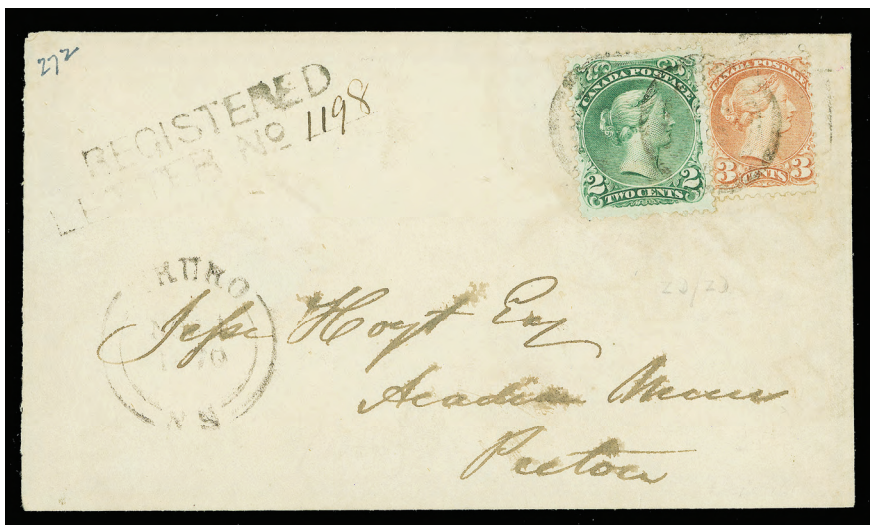 272
REGISTERED
LETTER No 1198
CANADA POSTAGE
2 2
TWO CENTS
CANADA POSTAGE
3 3
CENTS
RURO
N.S
Jesse Hoyt Esq
Acadia Mines
Pictou